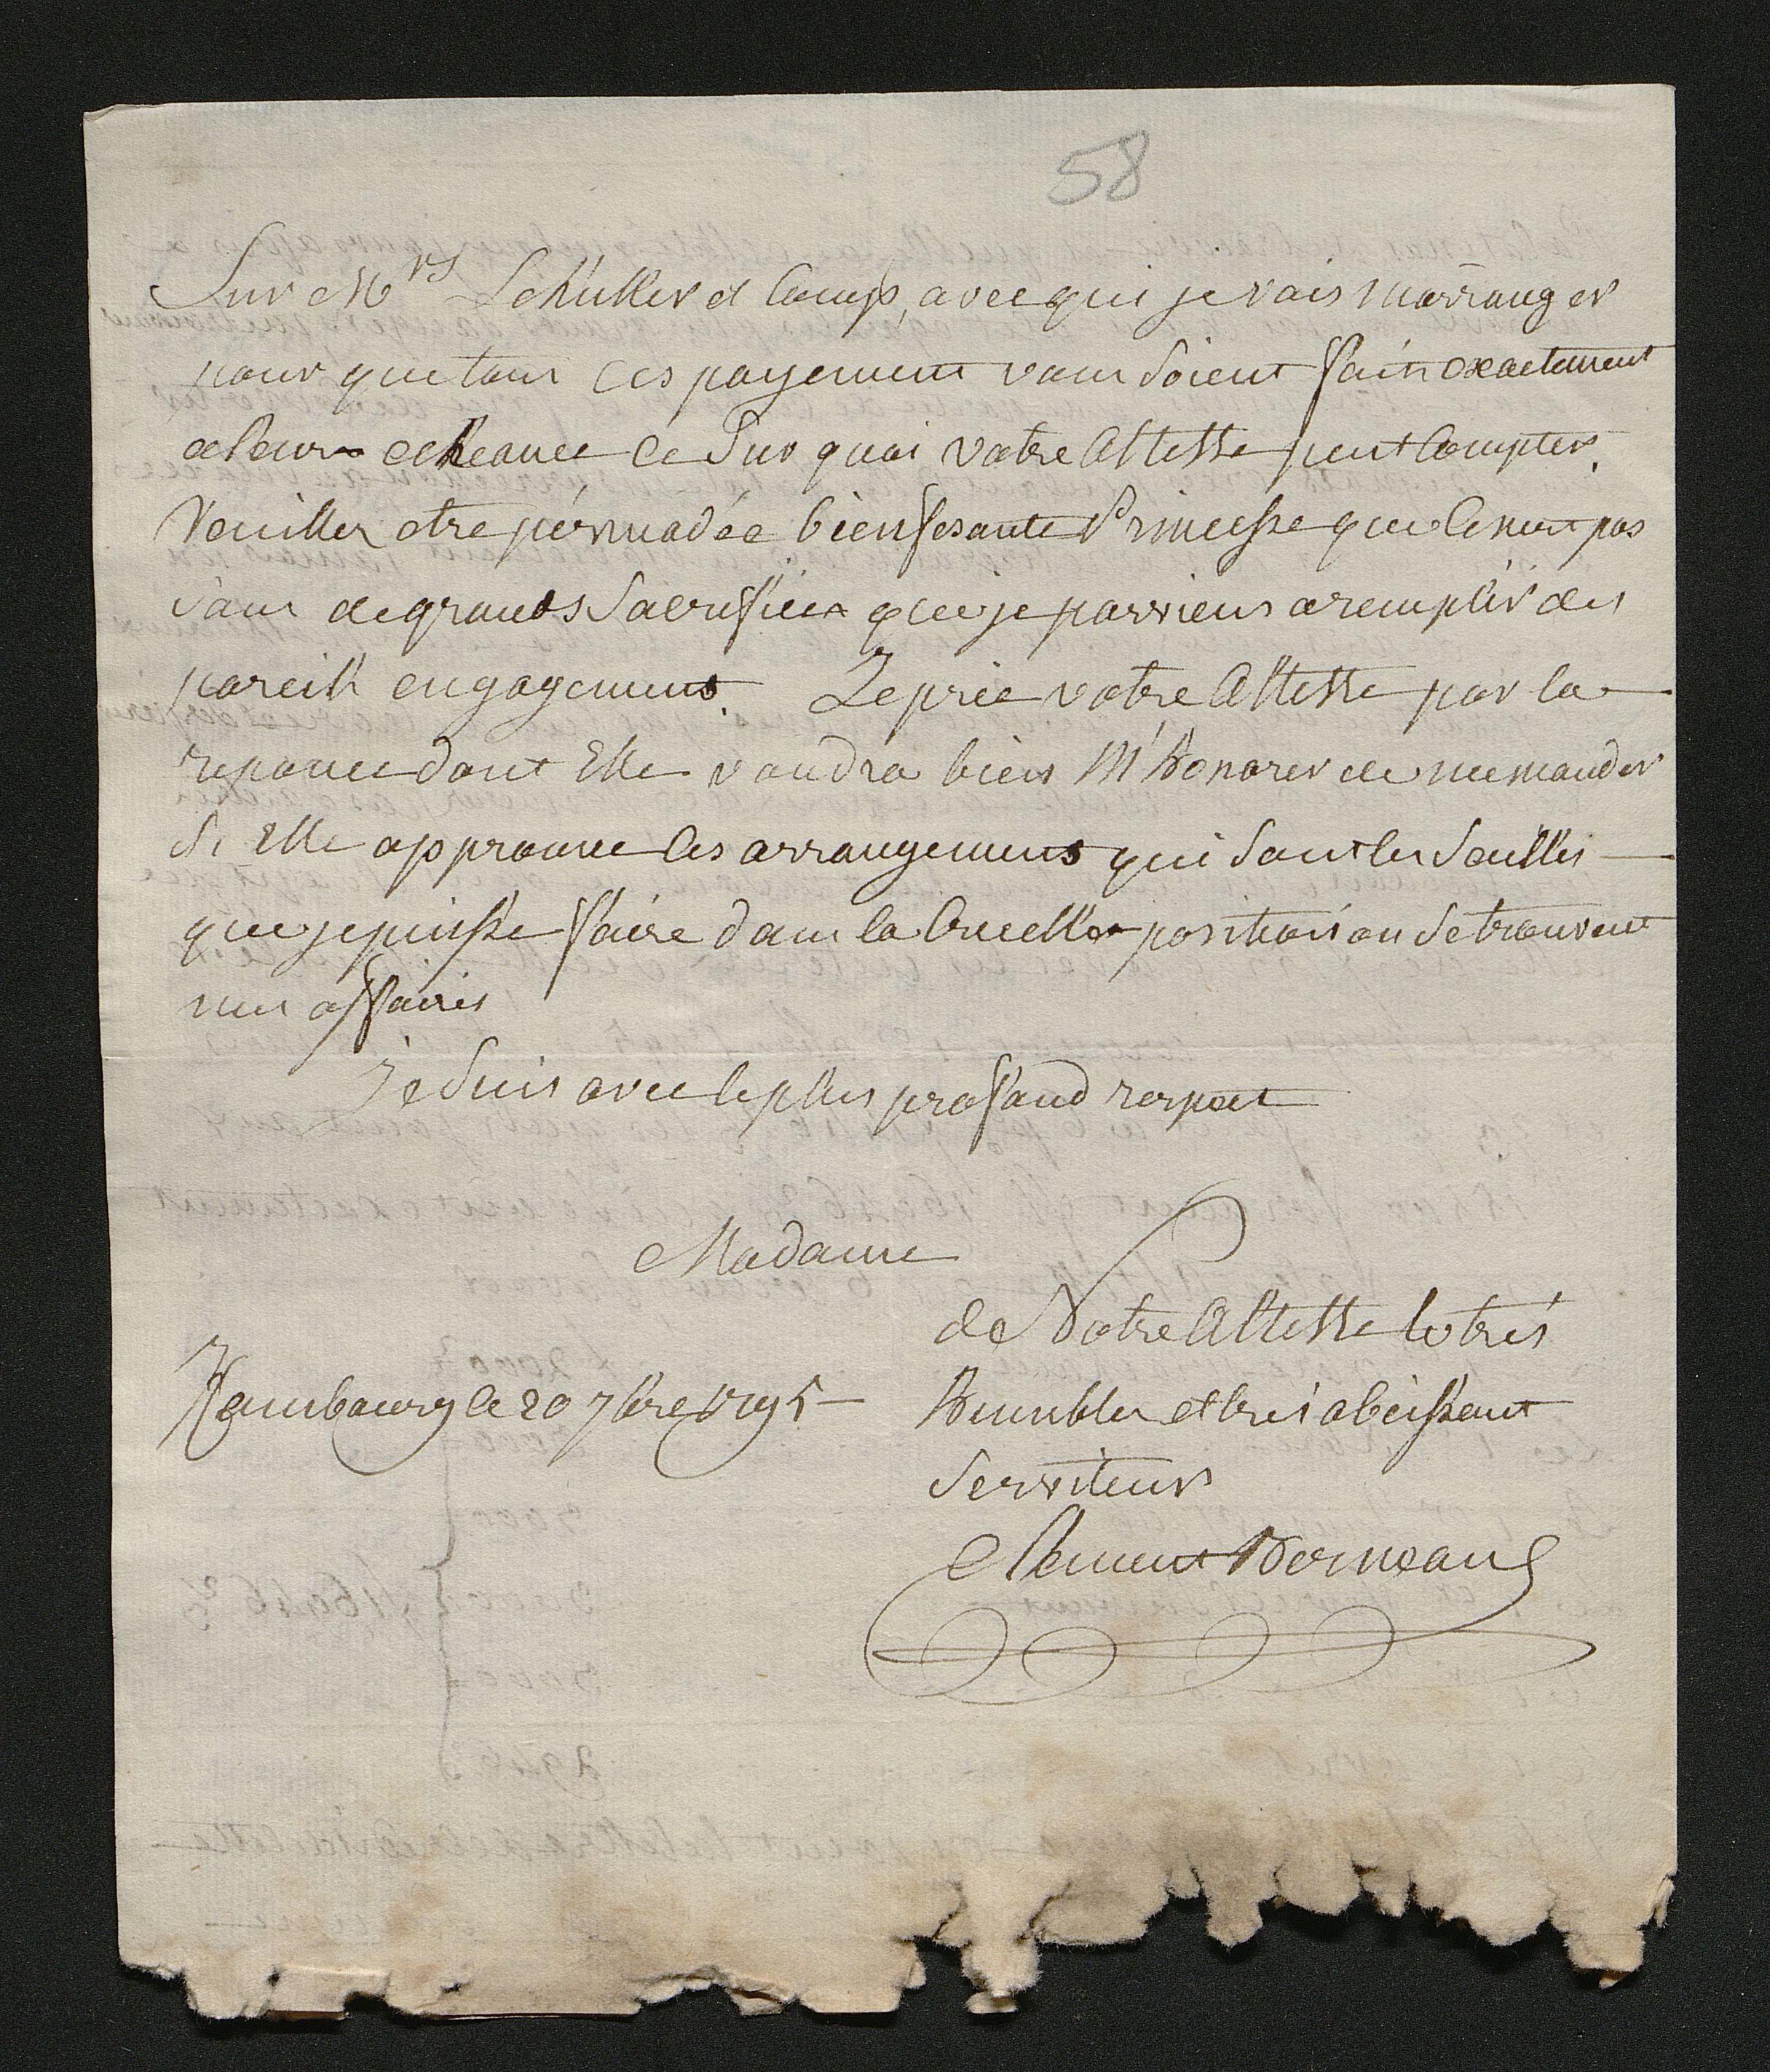 58
Sur Mrs Schuller et Comp, avec qui je vais m'arranger
pour que tous ces payement vous soient fait exactement
a leur echeance ce sur quoi votre Altesse peut compter.
Veuillez etre pérsuadée bienfesante Princesse que ce n'est pas
sans de grands sacrifices que je parviens a remplir des
pareils engagemens. Je prie votre Altesse par la
reponce dont Elle voudra bien M'honorer de me mander
si Elle approuve les arrangemens qui sont les seulles
que je puisse faire dans la cruelle position ou se trouvent
mes affaires
Je suis avec le plus profond respect
Madame
de Votre Altesse le trés
humble et trés obeissant
serviteur
Hambourg le 20 7bre 1795
Clement